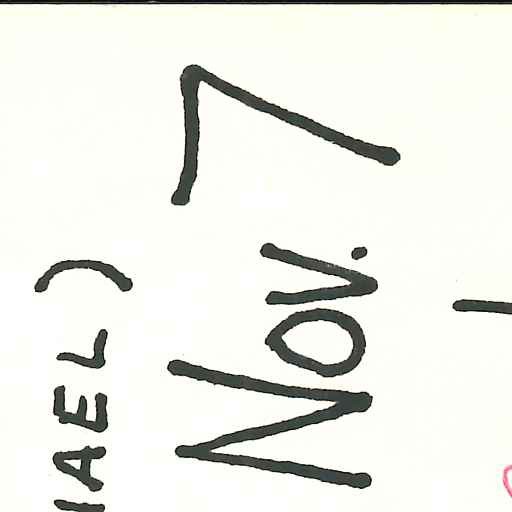 IAEL)
Nov. 7